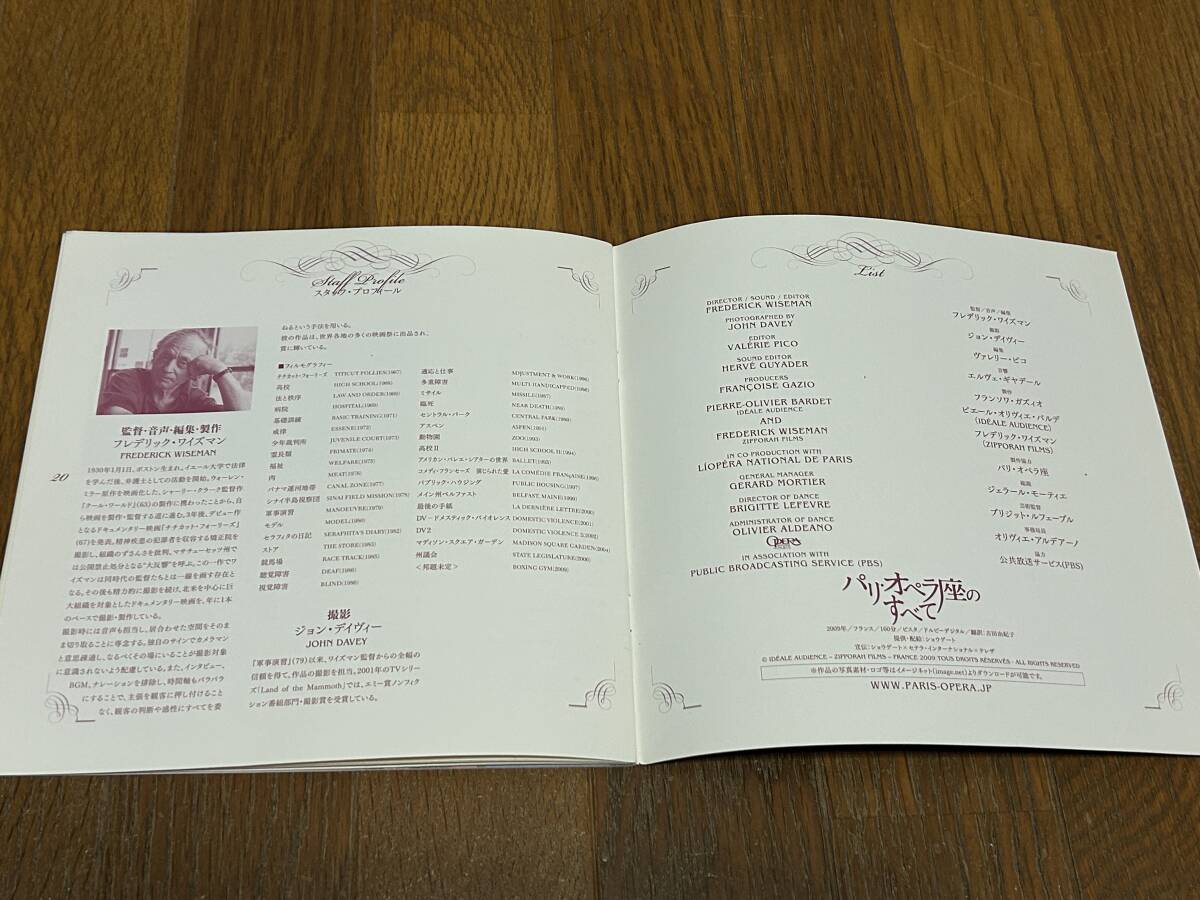 Staff Profile
スタッフ・プロフィール
監督・音声・編集・製作
フレデリック・ワイズマン
FREDERICK WISEMAN
1930年1月1日、ボストン生まれ。イエール大学で法律
を学んだ後、弁護士としての活動を開始。ウォーレン・
ミラー原作を映画化した、シャーリー・クラーク監督作
『クール・ワールド』(63)の製作に携わったことから、自
ら映画を製作・監督する道に進む。3年後、デビュー作
となるドキュメンタリー映画『チチカット・フォーリーズ』
(67)を発表。精神疾患の犯罪者を収容する矯正院を
撮影し、組織のずさんさを批判、マサチューセッツ州で
は公開禁止処分となる“大反響”を呼ぶ。この一作でワ
イズマンは同時代の監督たちとは一線を画す存在と
なる。その後も精力的に撮影を続け、北米を中心に巨
大組織を対象としたドキュメンタリー映画を、年に1本
のペースで撮影・製作している。
撮影時には音声も担当し、居合わせた空間をそのま
ま切り取ることに専念する。独自のサインでカメラマン
と意思疎通し、なるべくその場にいることが撮影対象
に意識されないよう配慮している。また、インタビュー、
BGM、ナレーションを排除し、時間軸もバラバラ
にすることで、主張を観客に押し付けること
なく、観客の判断や感性にすべてを委
20
ねるという手法を用いる。
彼の作品は、世界各地の多くの映画祭に出品され、
賞に輝いている。
■フィルモグラフィー
チチカット・フォーリーズ TITICUT FOLLIES(1967)
高校 HIGH SCHOOL(1968)
法と秩序 LAW AND ORDER(1969)
病院 HOSPITAL(1969)
基礎訓練 BASIC TRAINING(1971)
戒律 ESSENE(1972)
少年裁判所 JUVENILE COURT(1973)
霊長類 PRIMATE(1974)
福祉 WELFARE(1975)
肉 MEAT(1976)
パナマ運河地帯 CANAL ZONE(1977)
シナイ半島視察団 SINAI FIELD MISSION(1978)
軍事演習 MANOEUVRE(1979)
モデル MODEL(1980)
セラフィタの日記 SERAPHITA'S DIARY(1982)
ストア THE STORE(1983)
競馬場 RACE TRACK(1985)
聴覚障害 DEAF(1986)
視覚障害 BLIND(1986)
適応と仕事 ADJUSTMENT & WORK(1986)
多重障害 MULTI-HANDICAPPED(1986)
ミサイル MISSILE(1987)
臨死 NEAR DEATH(1989)
セントラル・パーク CENTRAL PARK(1989)
アスペン ASPEN(1991)
動物園 ZOO(1993)
高校Ⅱ HIGH SCHOOL II(1994)
アメリカン・バレエ・シアターの世界 BALLET(1995)
コメディ・フランセーズ 演じられた愛 LA COMÉDIE FRANÇAISE(1996)
パブリック・ハウジング PUBLIC HOUSING(1997)
メイン州ベルファスト BELFAST, MAINE(1999)
最後の手紙 LA DERNIÈRE LETTRE(2002)
DV－ドメスティック・バイオレンス DOMESTIC VIOLENCE(2001)
DV2 DOMESTIC VIOLENCE 2(2002)
マディソン・スクエア・ガーデン MADISON SQUARE GARDEN(2004)
州議会 STATE LEGISLATURE(2006)
＜邦題未定＞ BOXING GYM(2009)
撮影
ジョン・デイヴィー
JOHN DAVEY
『軍事演習』(79)以来、ワイズマン監督からの全幅の
信頼を得て、作品の撮影を担当。2001年のTVシリー
ズ「Land of the Mammoth」では、エミー賞ノンフィク
ション番組部門・撮影賞を受賞している。
List
DIRECTOR / SOUND / EDITOR
FREDERICK WISEMAN
PHOTOGRAPHED BY
JOHN DAVEY
EDITOR
VALÉRIE PICO
SOUND EDITOR
HERVÉ GUYADER
PRODUCERS
FRANÇOISE GAZIO
PIERRE-OLIVIER BARDET
IDÉALE AUDIENCE
AND
FREDERICK WISEMAN
ZIPPORAH FILMS
IN CO PRODUCTION WITH
L'OPÉRA NATIONAL DE PARIS
GENERAL MANAGER
GERARD MORTIER
DIRECTOR OF DANCE
BRIGITTE LEFEVRE
ADMINISTRATOR OF DANCE
OLIVIER ALDEANO
IN ASSOCIATION WITH
PUBLIC BROADCASTING SERVICE (PBS)
監督／音声／編集
フレデリック・ワイズマン
撮影
ジョン・デイヴィー
編集
ヴァレリー・ピコ
音響
エルヴェ・ギヤデール
製作
フランソワ・ガズィオ
ピエール・オリヴィエ・バルデ
(IDÉALE AUDIENCE)
フレデリック・ワイズマン
(ZIPPORAH FILMS)
製作協力
パリ・オペラ座
総裁
ジェラール・モーティエ
芸術監督
ブリジット・ルフェーブル
事務局長
オリヴィエ・アルデアーノ
協力
公共放送サービス(PBS)
パリ・オペラ座の
すべて
2009年／フランス／160分／ビスタ／ドルビーデジタル／翻訳：古田由紀子
提供・配給：ショウゲート
宣伝：ショウゲート×セテラ・インターナショナル×テレザ
© IDÉALE AUDIENCE – ZIPPORAH FILMS – FRANCE 2009 TOUS DROITS RÉSERVÉS - ALL RIGHTS RESERVED
※作品の写真素材・ロゴ等はイメージネット(image.net)よりダウンロードが可能です。
WWW.PARIS-OPERA.JP